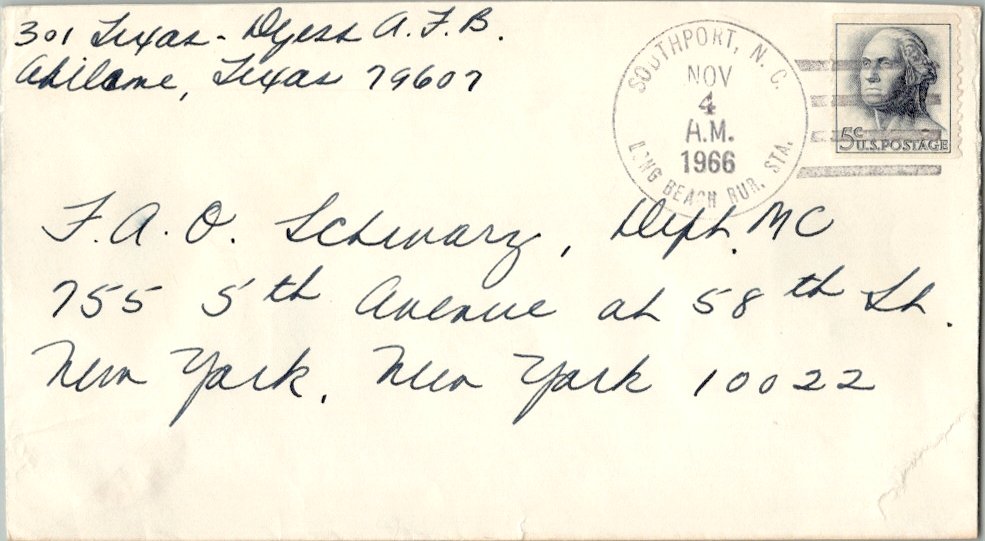 301 Texas - Dyess A.F.B.
Abilene, Texas 79607
SOUTHPORT, N. C.
NOV
4
A.M.
1966
LONG BEACH RUR. STA.
5¢ U.S.POSTAGE
F.A.O. Schwarz, Dept. MC
755 5th Avenue at 58th St.
New York, New York 10022